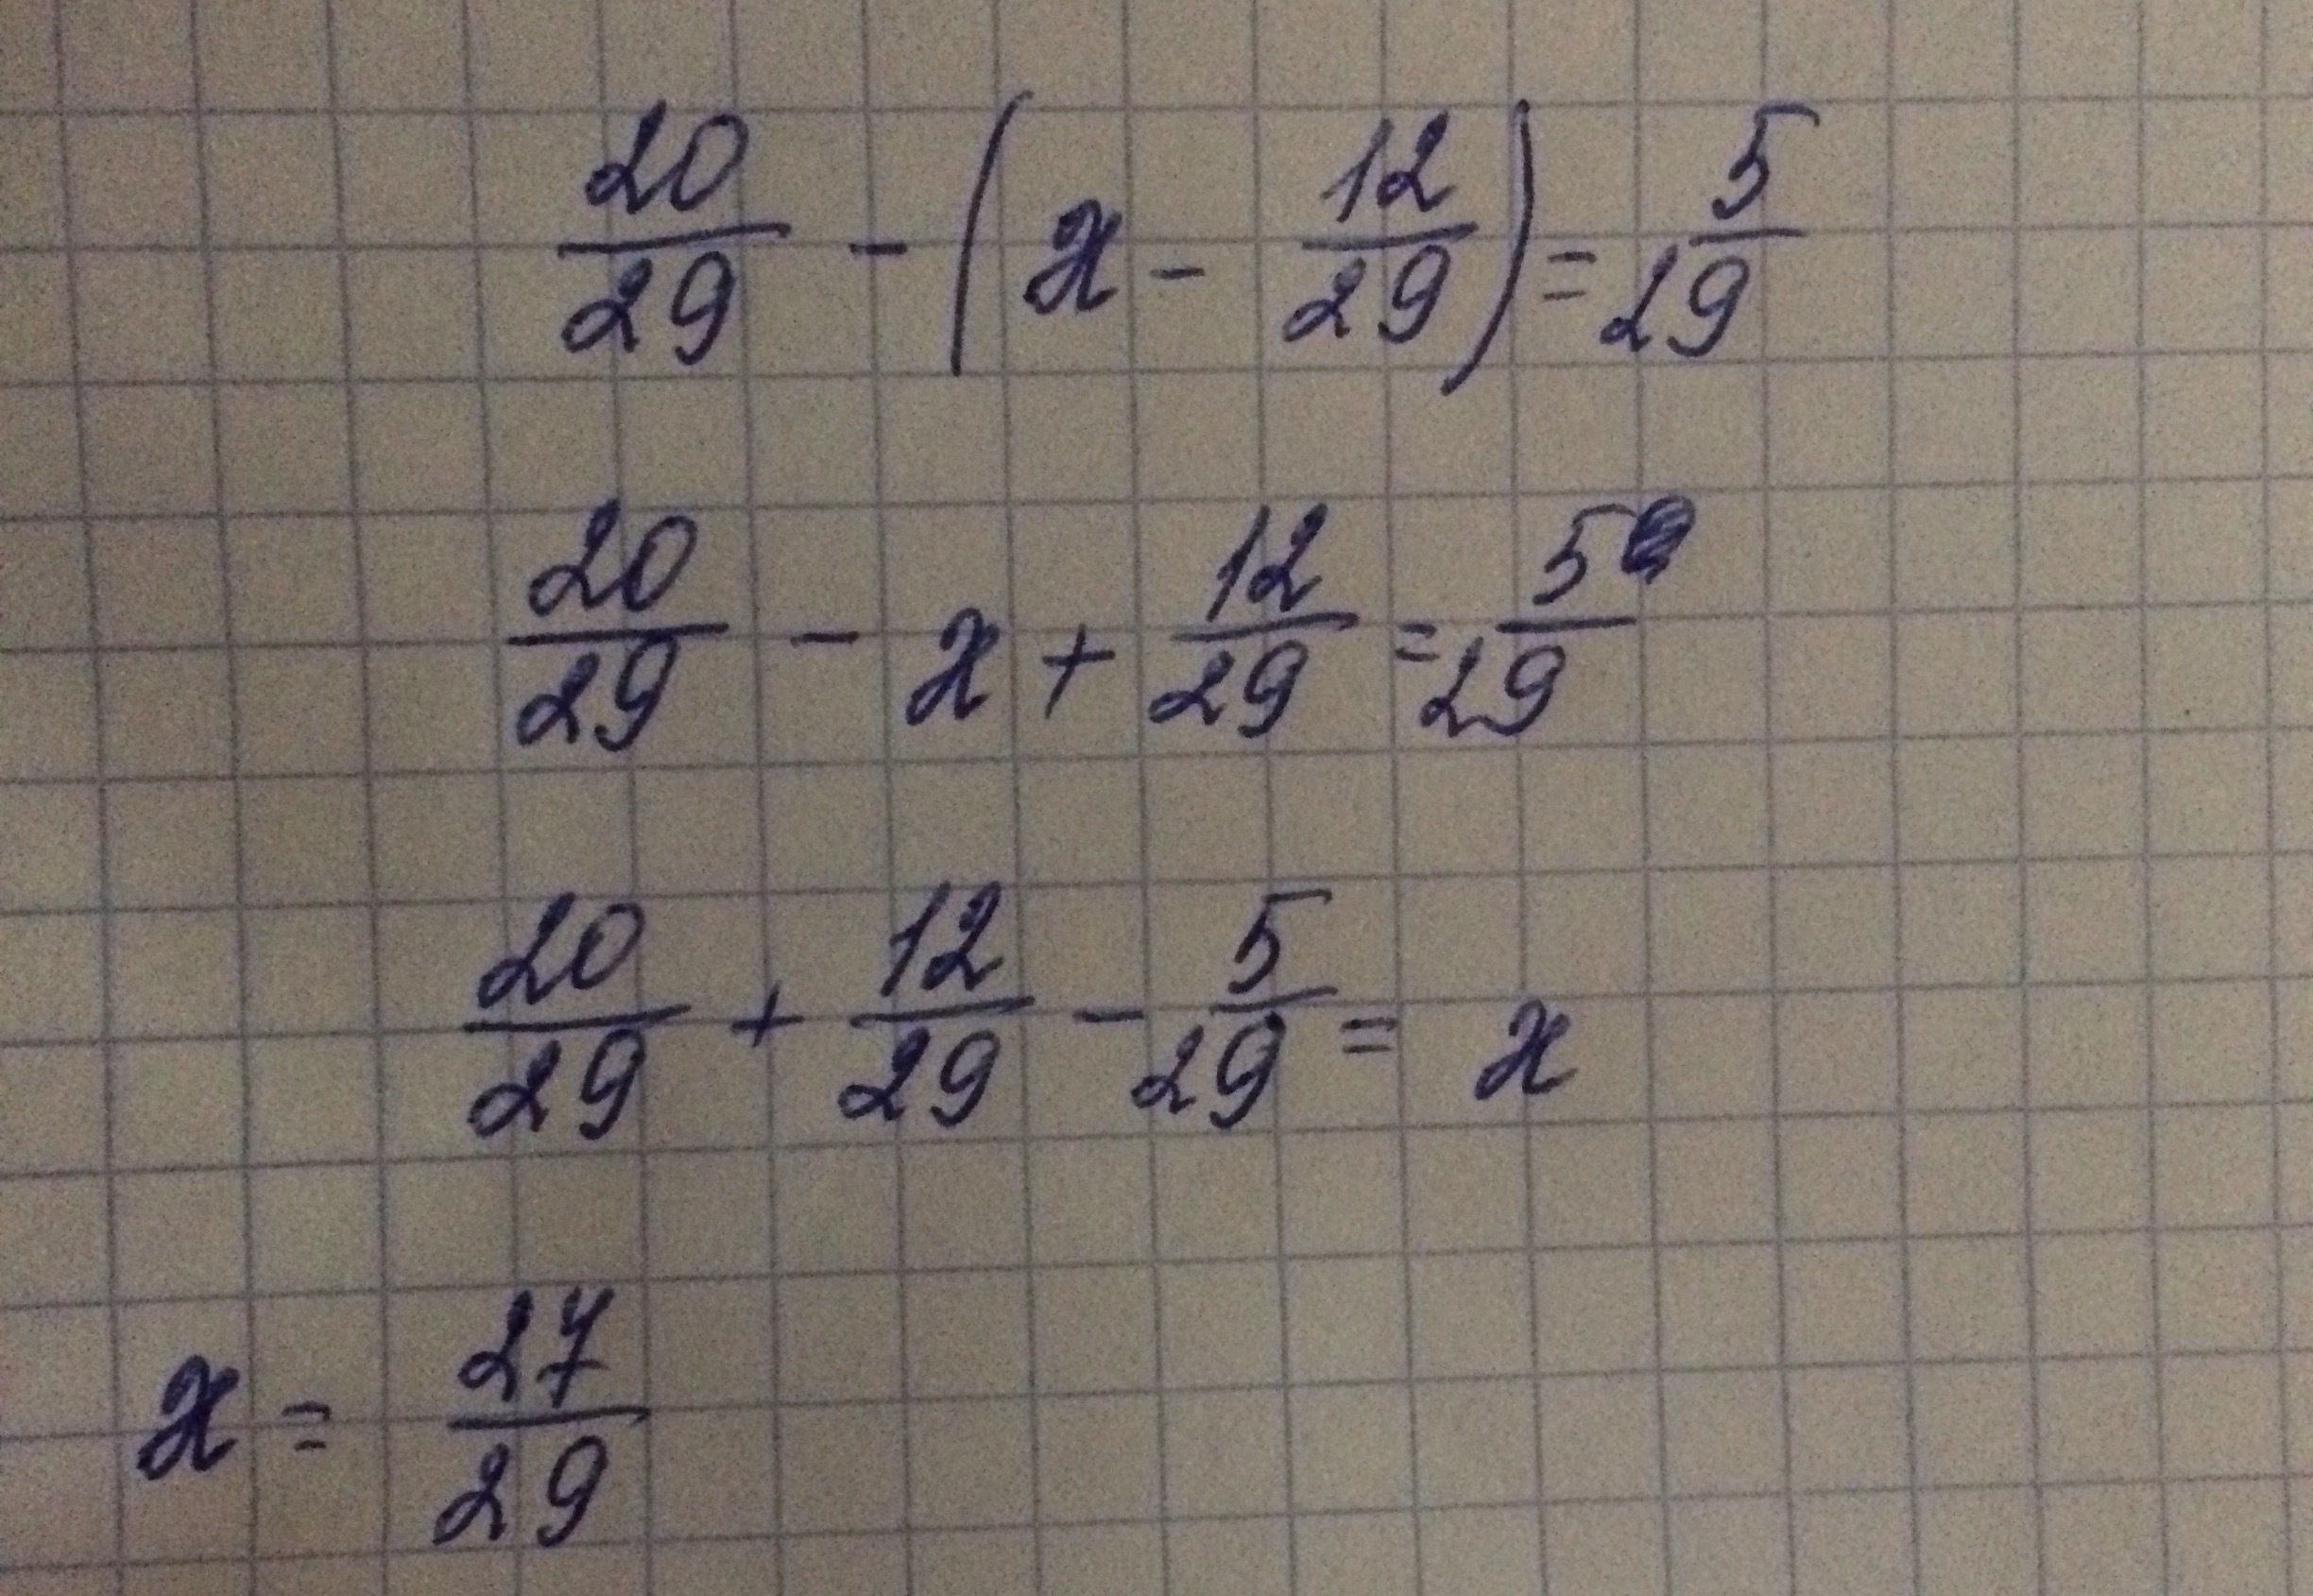 20/29 - (x - 12/29) = 5/29
20/29 - x + 12/29 = 5/29
20/29 + 12/29 - 5/29 = x
x = 27/29